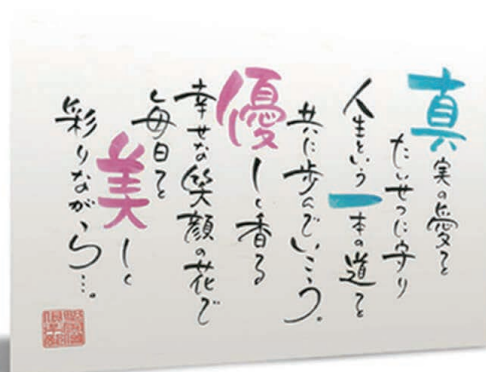 真実の愛を
たいせつに守り
人生という一本の道を
共に歩んでいこう。
優しく香る
幸せな笑顔の花で
毎日を
美しく
彩りながら…。